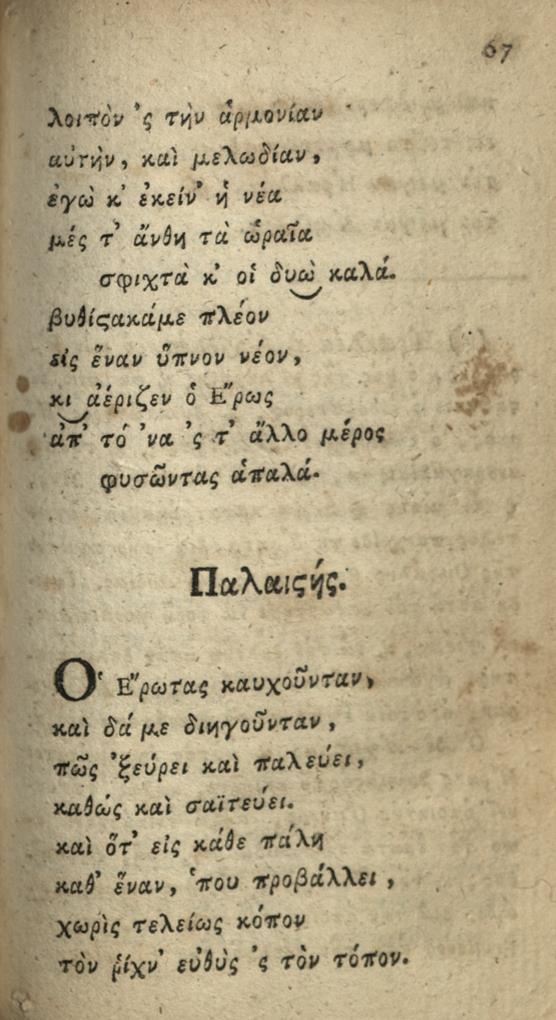 67
λοιπὸν ’ς τὴν ἁρμονίαν
αὐτὴν, καὶ μελωδίαν,
ἐγὼ κ’ ἐκείν’ ἡ νέα
μές τ’ ἄνθη τὰ ὡραῖα
σφιχτὰ κ’ οἱ δυὼ‿καλά.
βυθίϛακάμε πλέον
εἰς ἕναν ὕπνον νέον,
κι‿ἀέριζεν ὁ Ἔρως
ἀπ’ τό ’να ’ς τ’ ἄλλο μέρος
φυσῶντας ἁπαλά.
Παλαιϛής.
Ὁ Ἔρωτας καυχοῦνταν,
καὶ δά με διηγοῦνταν,
πῶς ’ξεύρει καὶ παλεύει,
καθὼς καὶ σαϊτεύει.
καὶ ὅτ’ εἰς κάθε πάλη
καθ’ ἕναν, ‘που προβάλλει,
χωρὶς τελείως κόπον
τὸν ῥίχν’ εὐθὺς ’ς τὸν τόπον.